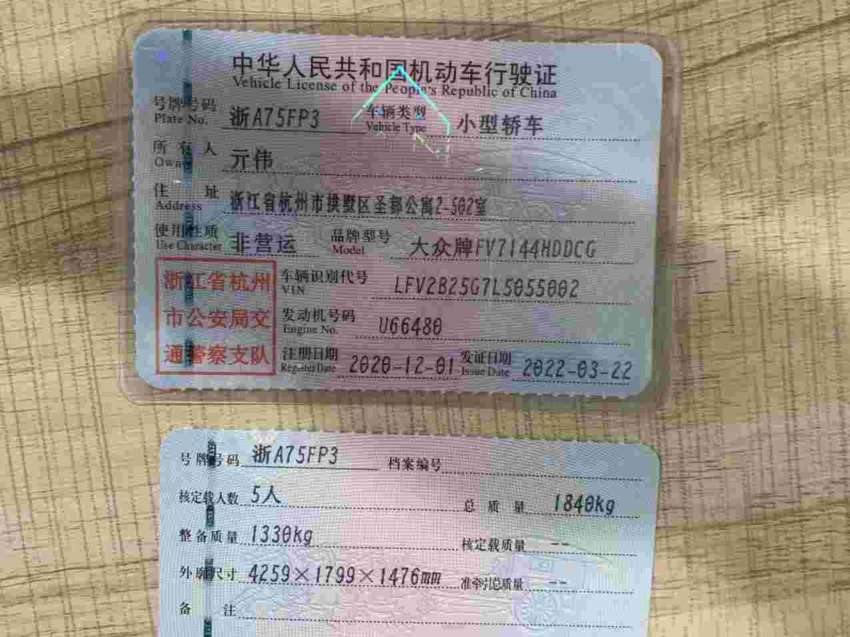 中华人民共和国机动车行驶证
Vehicle License of the People's Republic of China
号牌号码 浙A75FP3 车辆类型 小型轿车
Plate No. Vehicle Type
所有人 亓伟
Owner
住址 浙江省杭州市拱墅区圣都公寓2-502室
Address
使用性质 非营运 品牌型号 大众牌FV7144HDDCG
Use Character Model
浙江省杭州 车辆识别代号 LFV2B25G7L5055002
VIN
市公安局交 发动机号码 U66480
Engine No.
通警察支队 注册日期 2020-12-01 发证日期 2022-03-22
Register Date Issue Date
号牌号码 浙A75FP3 档案编号
核定载人数 5人 总质量 1840kg
整备质量 1330kg 核定载质量 --
外廓尺寸 4259×1799×1476mm 准牵引总质量 --
备注